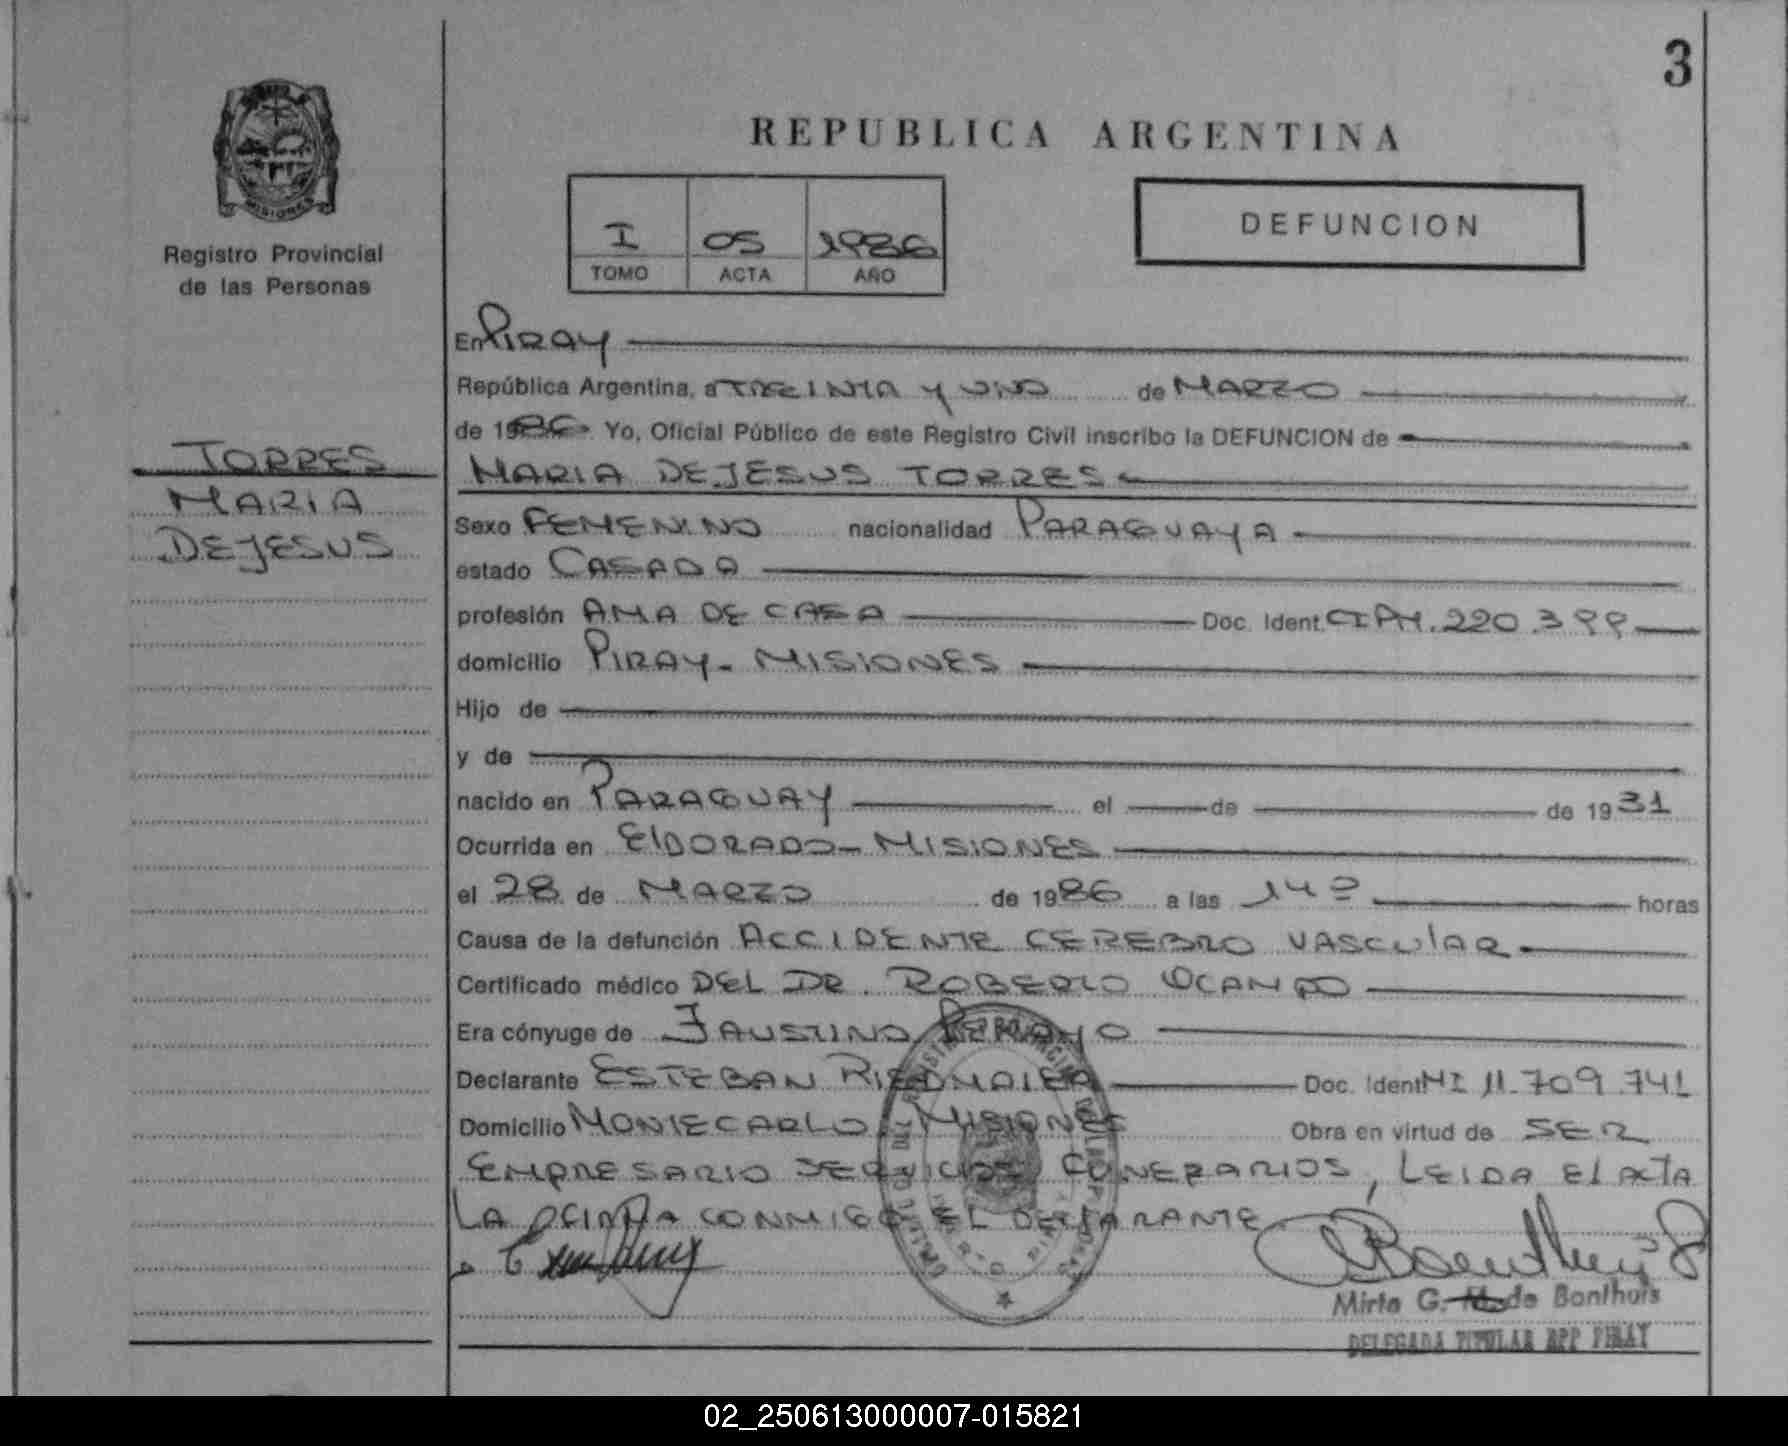 3
REPUBLICA ARGENTINA
MISIONES
Registro Provincial
de las Personas
I 05 1986
TOMO ACTA AÑO
DEFUNCION
TORRES
MARIA
DEJESUS
En PIRAY
República Argentina, a TREINTA Y UNO de MARZO
de 1986 Yo, Oficial Público de este Registro Civil inscribo la DEFUNCION de
MARIA DEJESUS TORRES
Sexo FEMENINO nacionalidad PARAGUAYA
estado CASADA
profesión AMA DE CASA Doc. Ident. CIPM. 220.399
domicilio PIRAY - MISIONES
Hijo de
y de
nacido en PARAGUAY el de de 1931
Ocurrida en ElDORADO - MISIONES
el 28 de MARZO de 1986 a las 14º horas
Causa de la defunción ACCIDENTE CEREBRO VASCULAR
Certificado médico DEL DR. ROBERTO OCAMPO
Era cónyuge de FAUSTINO
Declarante ESTEBAN Doc. Ident MI 11.709.741
Domicilio MONTECARLO MISIONES Obra en virtud de SER
EMPRESARIO SERVICIOS FUNERARIOS, LEIDA El ACTA
LA FIRMA CONMIGO EL DECLARANTE
Mirta G. M. de Bonthuis
DELEGADA TITULAR RPP PIRAY
02_250613000007-015821